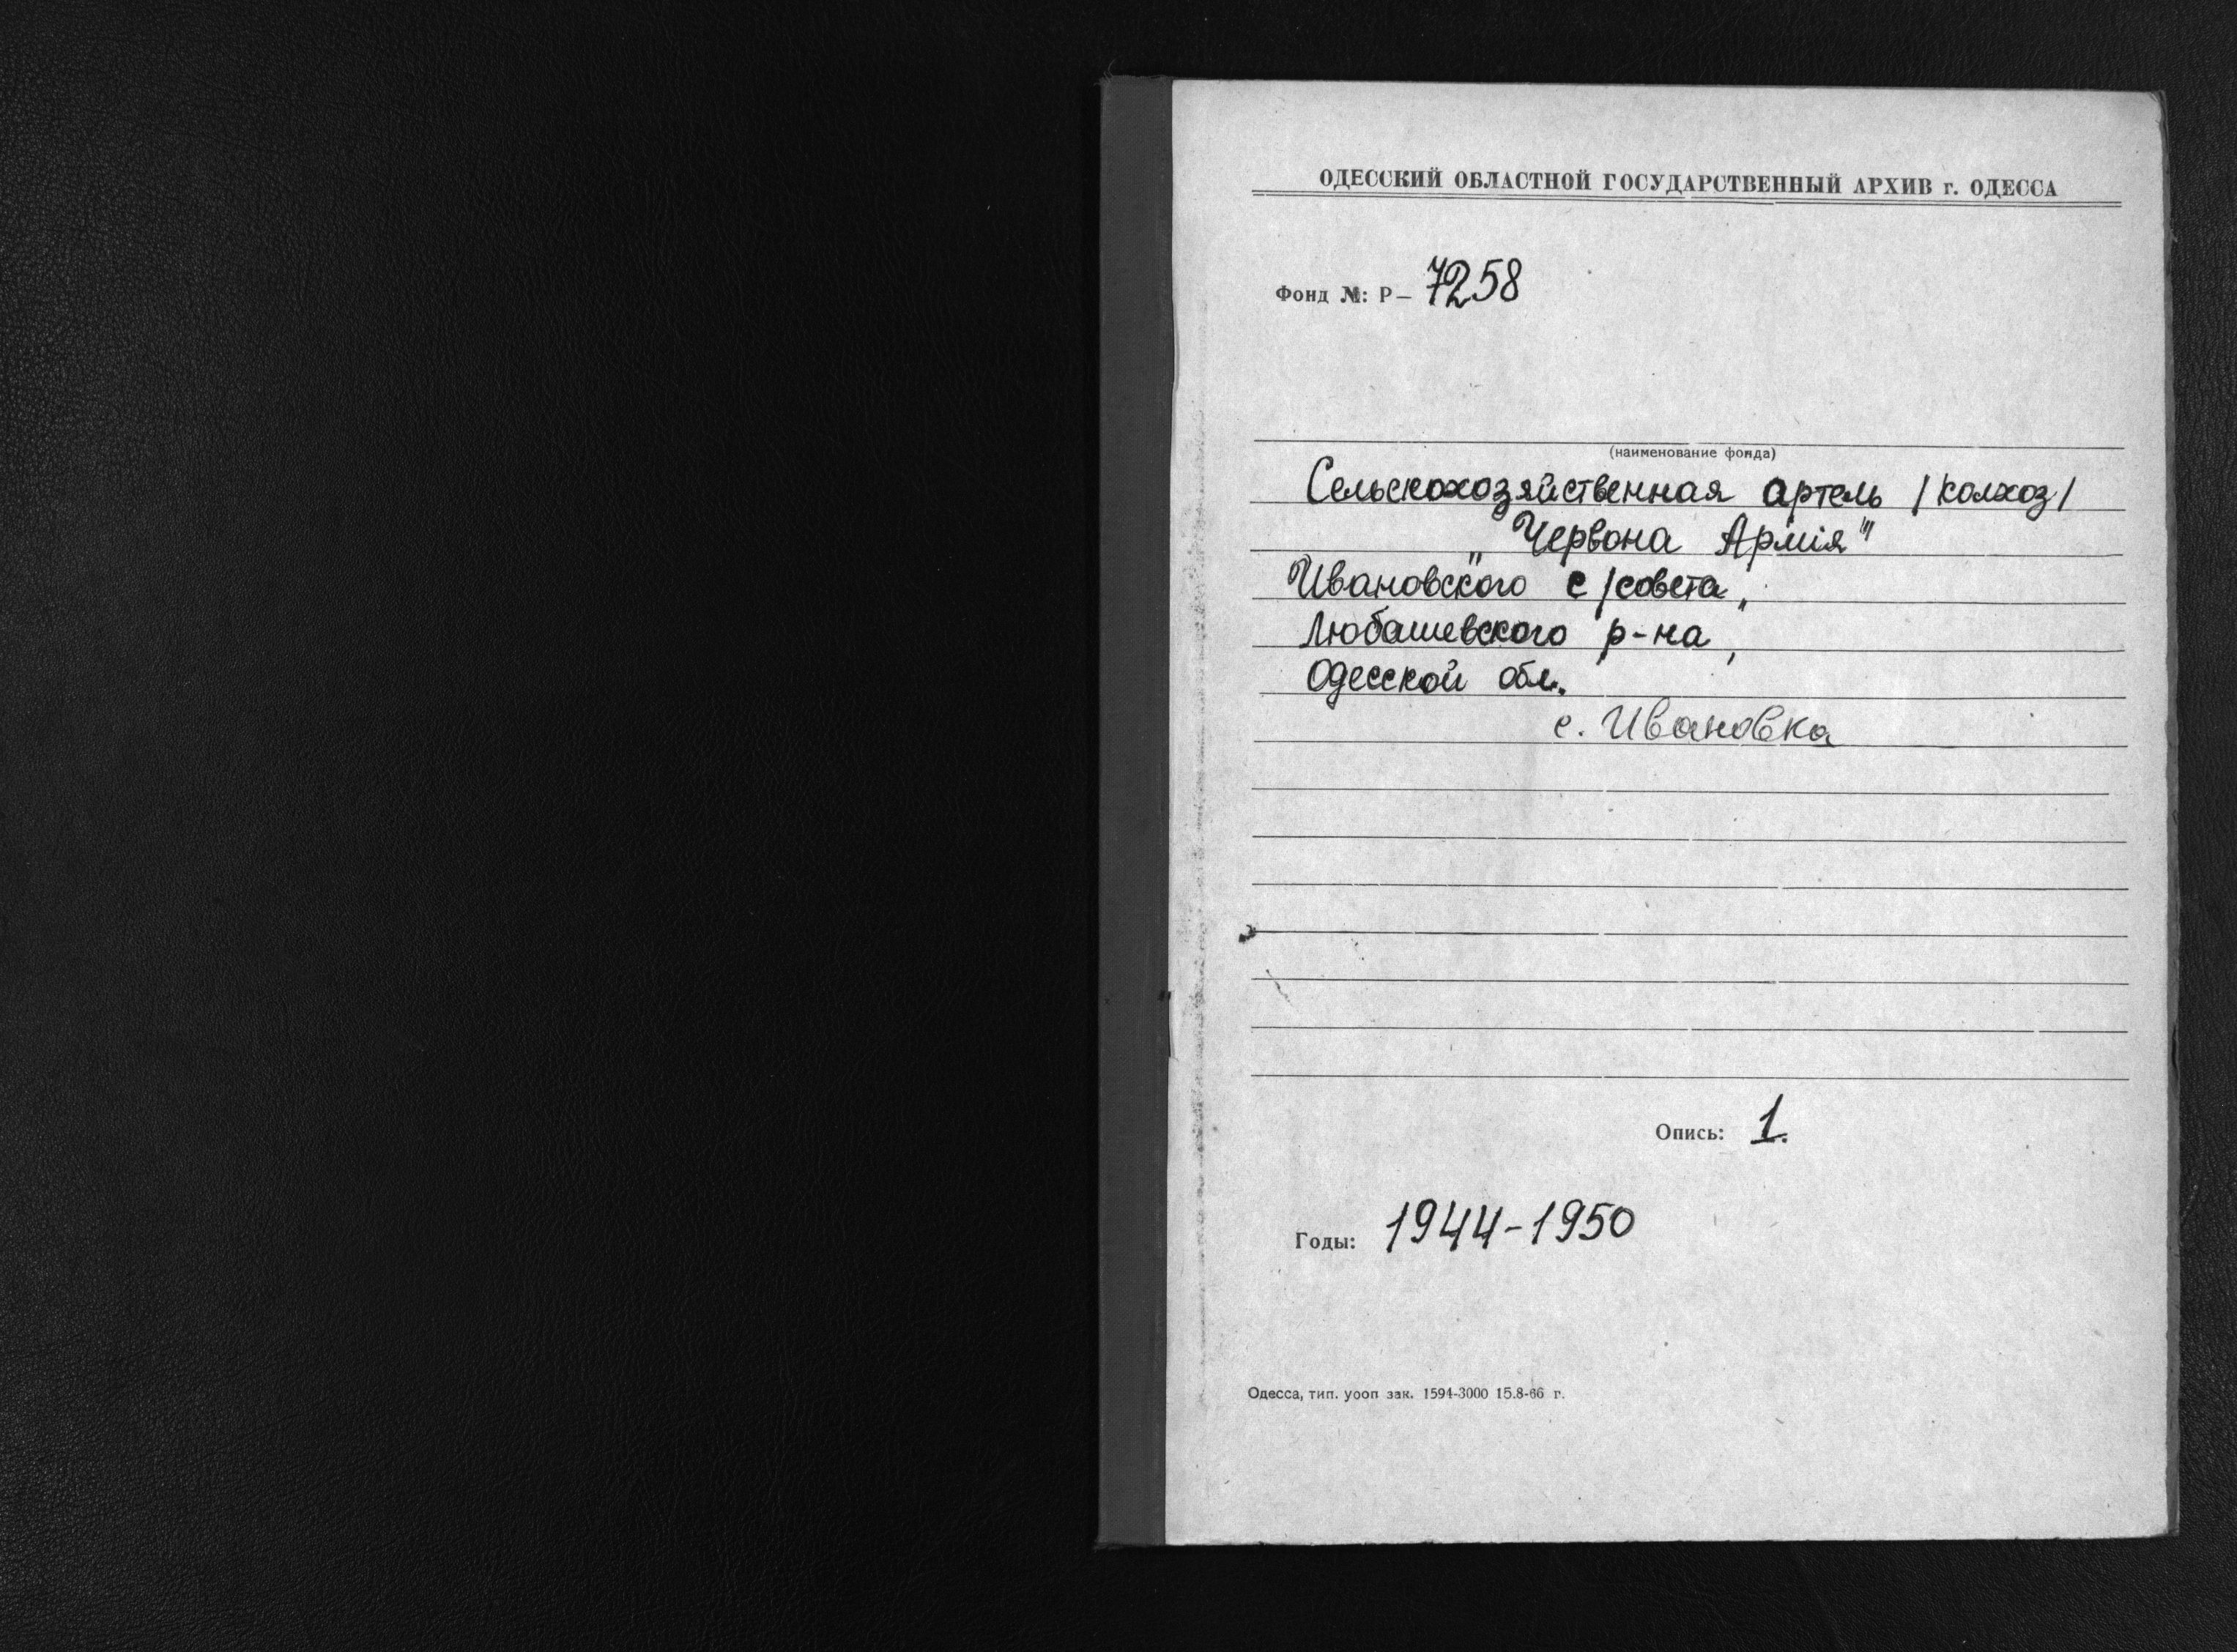 ОДЕССКИЙ ОБЛАСТНОЙ ГОСУДАРСТВЕННЫЙ АРХИВ г. ОДЕССА
Фонд №: Р— 7258
(наименование фонда)
Сельскохозяйственная артель /колхоз/
„Червона Армія"
Ивановского с/совета,
Любашевского р-на,
Одесской обл.
с. Ивановка
Опись: 1.
Годы: 1944-1950
Одесса, тип. уооп зак. 1594-3000 15.8-66 г.